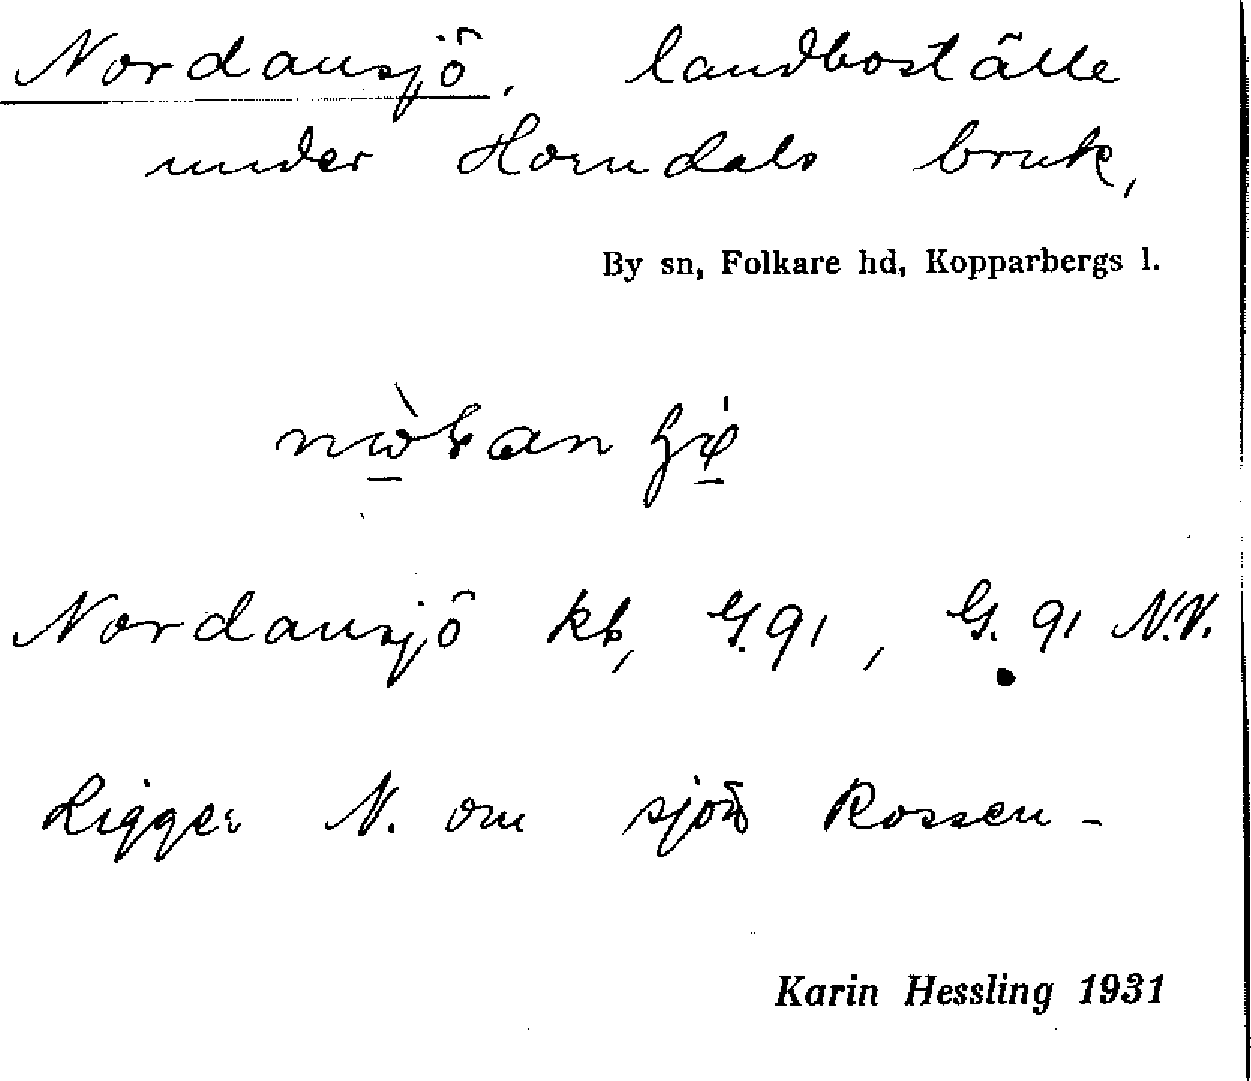 Nordansjö, landboställe
under Horndals bruk,
By sn, Folkare hd, Kopparbergs l.
Nordansjö kb, G.91, G. 91 N.V.
Ligger N. om sjön Rossen -
Karin Hessling 1931